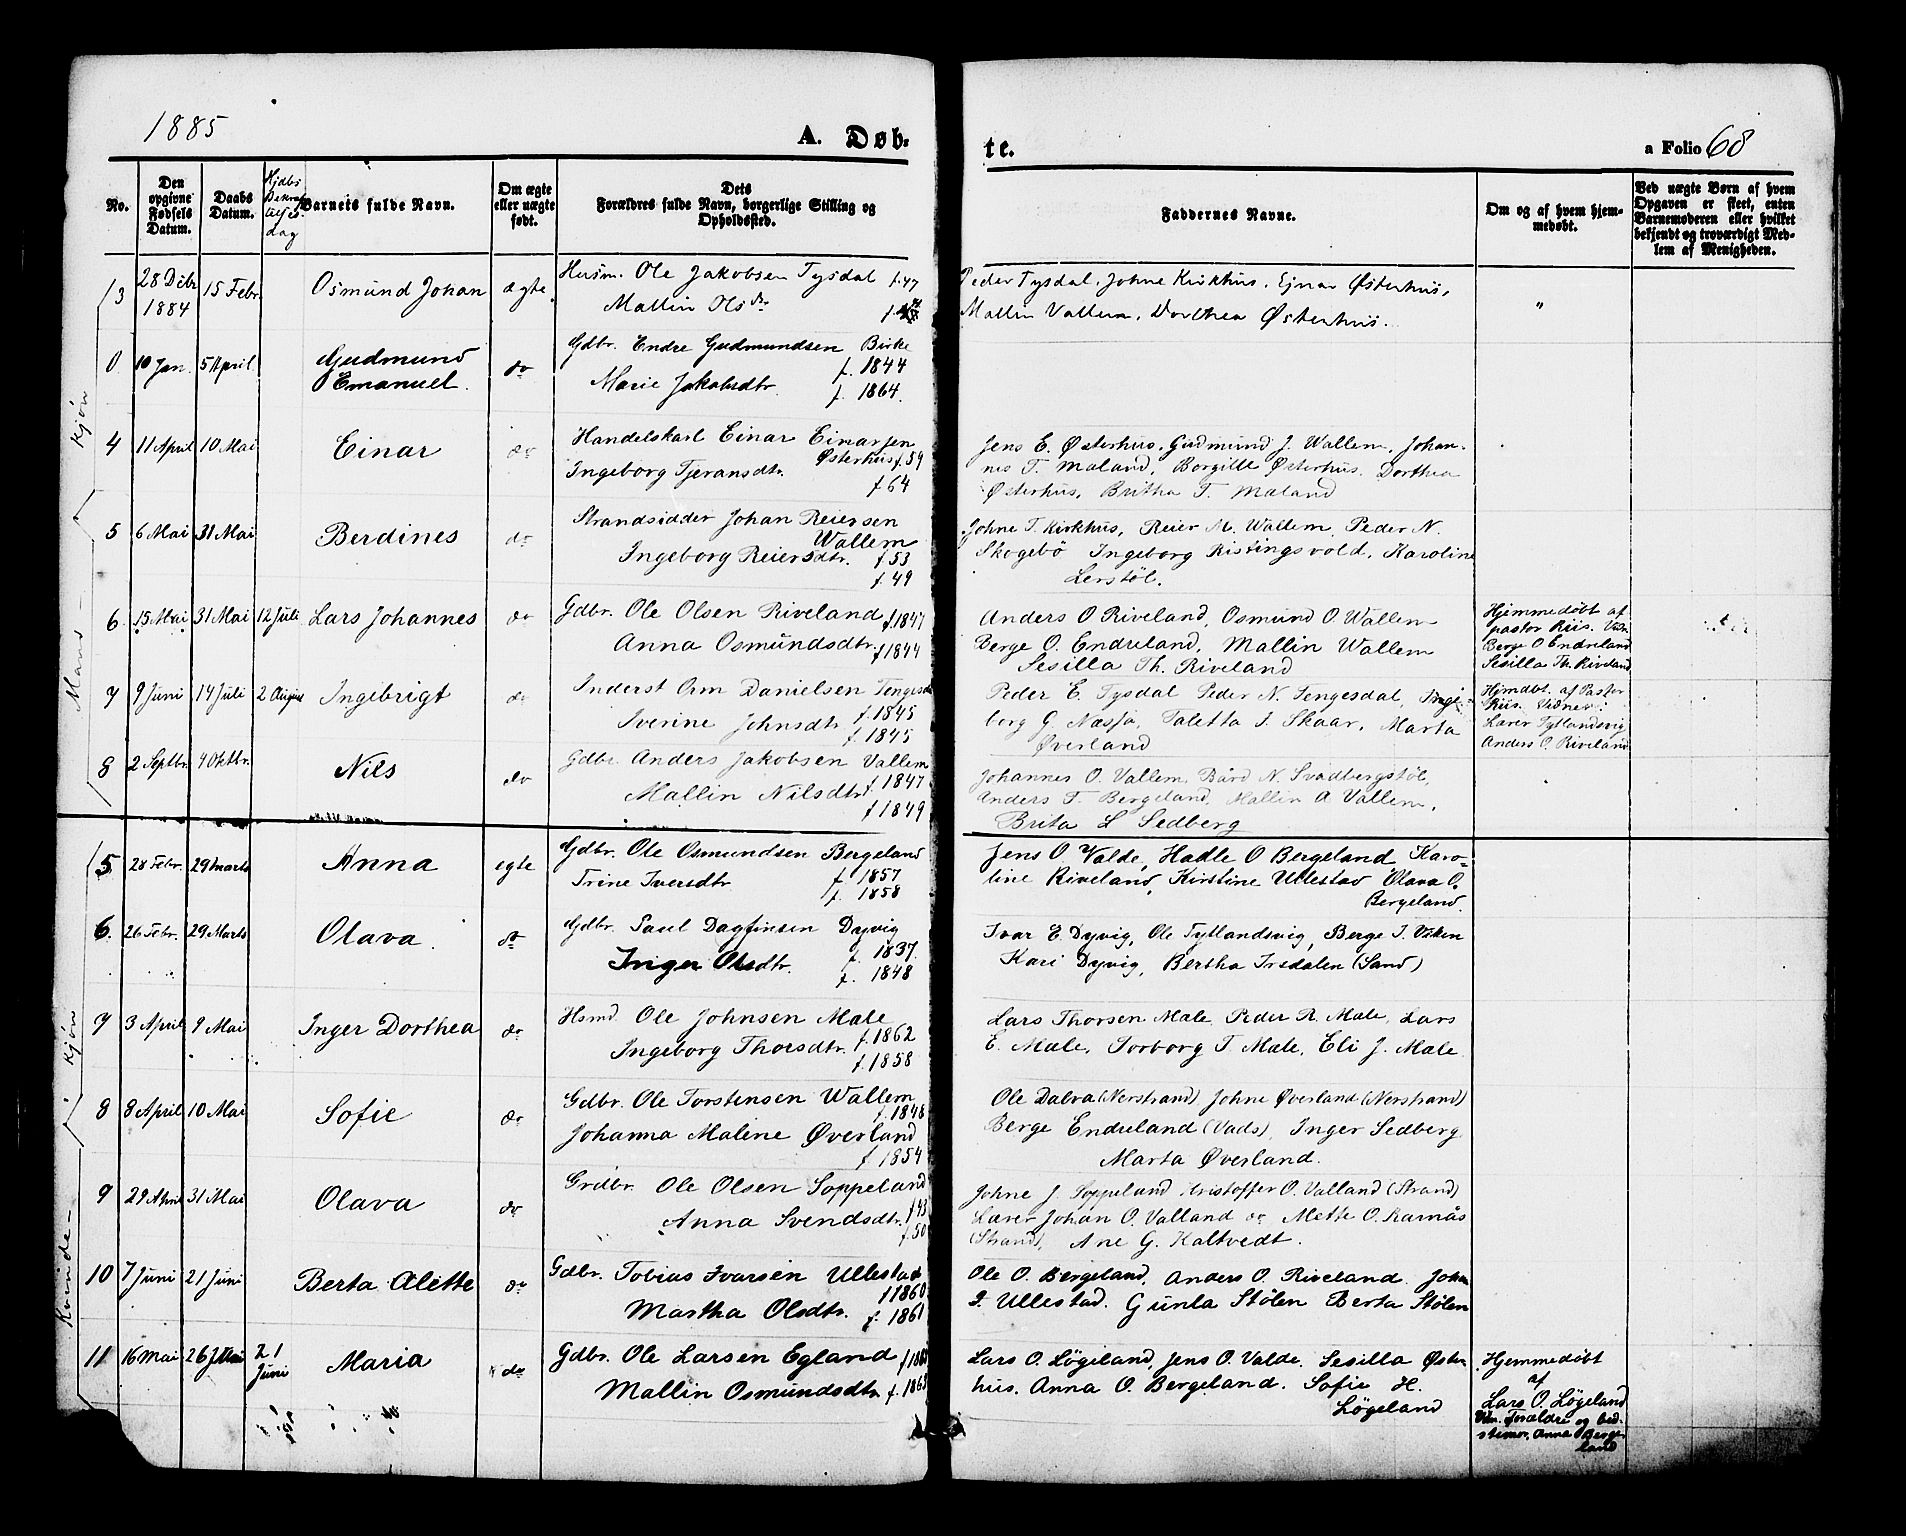 1885
A. Døb-
te.
a Folio 68
No.
Den opgivne Fødsels Datum.
Daabs Datum.
Hjdbs
Barnets fulde Navn.
Om ægte eller uægte født.
Dets Forældres fulde Navn, borgerlige Stilling og Opholdssted.
Faddernes Navne.
Om og af hvem hjemmedøbt.
Ved uægte Børn af hvem Opgaven er skeet, enten Barnemoderen eller hvilket bekjendt og troværdigt Medlem af Menigheden.
Mands- Kjøn
3 28 Debr 1884 15 Febr. Osmund Johan ægte Husm. Ole Jakobsen Tysdal f. 47
Mallin Olsdr.
Peder Tysdal, Johne Kirkhus, Ejnar Østerhus,
Mallin Vallem, Dorthea Østerhus. "
0 10 Jan. 5 April Gudmund Emanuel. do Gdbr. Endre Gudmundsen Birke
f. 1844
Marie Jakobsdtr. f. 1864.
4 11 April 10 Mai Einar do Handelskarl Einar Einarsen
Østerhus f. 59
Ingeborg Tjeransdtr.
f 64
Jens E. Østerhus, Gudmund J. Wallem, Johan-
nes T. Maland, Borgille Østerhus. Dorthea
Østerhus, Britha T. Maland
5 6 Mai 31 Mai Berdines do Strandsidder Johan Reiersen
Wallem
Ingeborg Reiersdtr. f. 53
f. 49
Johne T. Kirkhus, Reier M. Wallem, Peder N.
Skogebö Ingeborg Ristingsvold, Karoline
Lerstöl.
6. 15 Mai 31 Mai 12 Juli Lars Johannes do Gdbr. Ole Olsen Riveland f 1847
Anna Osmundsdtr. f 1844
Anders O Riveland, Osmund O Wallem
Berge O. Endreland, Mallin Wallem
Sesilla Th. Riveland
Hjemmedøbt af
pastor Riis.
Berge O Endreland
Sesilla Th. Riveland
7 9 Juni 14 Juli 2 August Ingebrigt do Inderst Orm Danielsen Tengesdal
f. 1845
Iverine Johnsdtr f. 1845
Peder E. Tysdal Peder N. Tengesdal, Inge-
borg G. Næsja, Taletta J. Skaar, Marta
Øverland
Hjmdbt. af Pastor
Riis. Vidner:
Lærer Tytlandsvig
Anders O. Riveland
8 2 Septbr. 4 Oktbr. Nils do Gdbr. Anders Jakobsen Vallem
f. 1847
Mallin Nilsdtr.
f 1849
Johannes O. Vallem, Bård N. Svadbergstöl,
Anders T. Bergeland, Mallin A Vallem,
Brita L Sedberg
Kvinde- Kjøn
5 28 Febr. 29 Marts Anna egte Gdbr. Ole Osmundsen Bergeland
f. 1857
Trine Iversdtr f. 1858
Jens O. Valde, Hadle O Bergeland Karo-
line Riveland, Kirstine Ullestad Olava O.
Bergeland.
6. 26 Febr. 29 Marts Olava do Gdbr. Paul Dagfinsen Dyvig
f. 1837.
Inger Olsdtr. f. 1848
Ivar E. Dyvig, Ole Tytlandsvig, Berge I. Viken
Kari Dyvig, Bertha Irsdalen (Sand)
7 3 April 9 Mai Inger Dorthea do Hsmd. Ole Johnsen Mæle
f. 1862
Ingeborg Thorsdtr. f. 1858
Lars Thorsen Mæle, Peder R. Mæle, Lars
E. Mæle, Torborg T Mæle, Eli J. Mæle
8 8 April 10 Mai Sofie do Gdbr. Ole Torstensen Wallem
f. 1848
Johanna Malene Øverland
f. 1854
Ole Dalva (Nerstrand) Johne Øverland (Nerstrand)
Berge Endreland (Vads), Inger Sedberg
Marta Øverland.
9 29 April 31 Mai Olava do Grdbr. Ole Olsen Soppeland
f 43
Anna Svendsdtr. f. 50
Johne J. Soppeland Kristoffer O. Valland (Strand)
Lærer Johan O. Valland do Mette O. Ramås
(Strand), Ane G. Kaltvedt.
10 7 Juni 21 Juni Berta Alette do Gdbr. Tobias Ivarsen Ullestad
f 1860
Martha Olsdtr. f. 1861
Ole O. Bergeland, Anders O. Riveland. John
I. Ullestad. Gunla Stölen Berta Stölen
11 16 Mai 26 Juli 21 Juni Maria do Gdbr. Ole Larsen Egland
Mallin Osmundsdtr f. 1863
Lars O. Løgeland, Jens O. Valde. Sesilla Øster-
hus. Anna O. Bergeland. Sofie H.
Løgeland
Hjemmedöbt
af
Lars O. Løgeland
Vdn. Forældre og bed-
stemor, Anna O Berge-
land